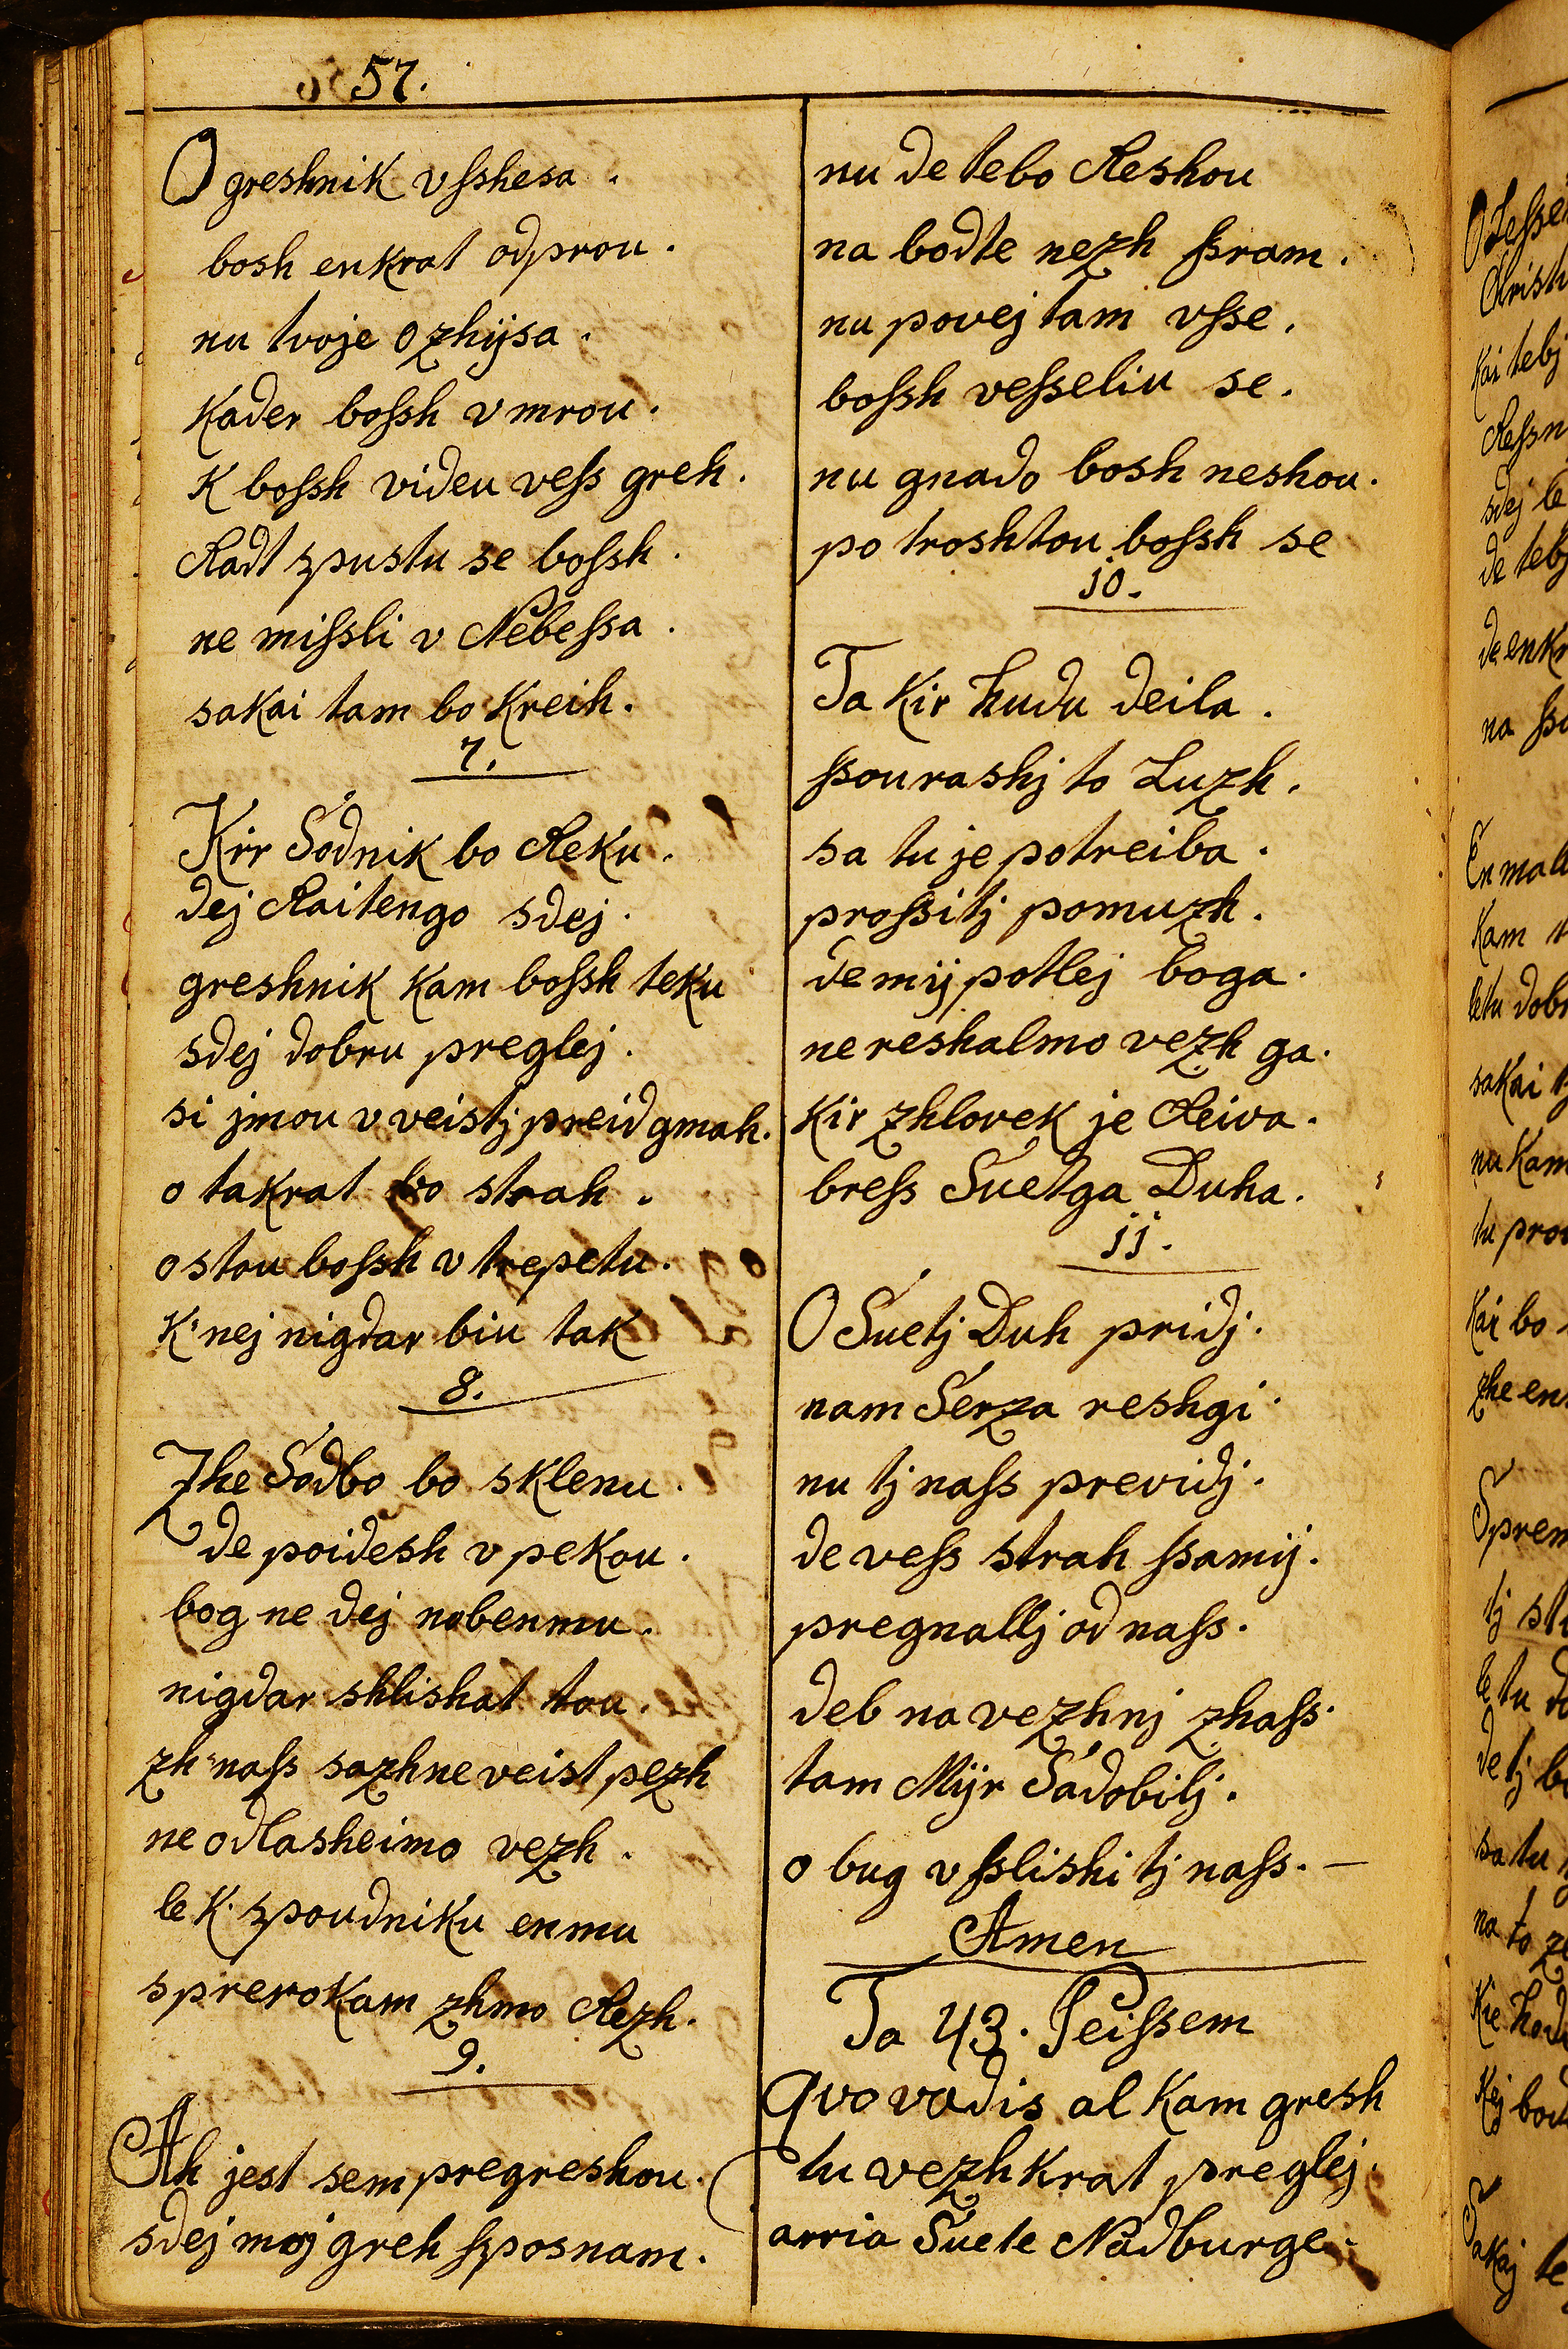 57.
O greshnik vſshesa .
bosh enkrat odprou .
nu tvoje ozhijsa .
Kader boſsh vmrou .
K boſsh videu veſs greh .
Radt zpustu se boſsh .
ne miſsli v Nebeſsa .
sakai tam bo Kreih .
7.
Kir Sodnik bo Reku .
dej Raitengo sdej .
greshnik kam boſsh teku
sdej dobru preglej .
si jmou v veistj preid gmah .
o takrat bo strah .
ostou boſsh v trepetu .
K' nej nigdar biu tak
8.
Zhe Sodbo bo sklenu .
de poidesh v pekou .
bog ne dej nobenmu .
nigdar shlishat tou .
zh' naſs sazhne veist pezh
ne odlasheimo vezh .
le K. zpoudniku enmu
sprerokam zhmo Rezh .
9.
Ah jest sem pregreshou .
sdej moj greh ſsposnam .
nu de tebo Reshou
na bodte nezh ſsram .
nu povej tam vſse .
boſsh veſseliu se .
nu gnado bosh neshou .
potroshtou boſsh se
10.
Ta Kir hudu deila .
ſsourashj to Luzh .
sa tu je potreiba .
proſsitj pomuzh .
de mij potlej boga .
ne reshalmo vezh ga .
Kir zhlovek je Reiva .
breſs Suetga Duha .
11.
O Suetj Duh pridj .
nam Serza reshgi .
nu tj naſs previdj .
de veſs strah ſsamij .
pregnallj od naſs .
deb na vezhnj zhaſs .
tam Mijr Sadobilj .
o bug vſslishi tj naſs . —
Amen
Ta 43. Peiſsem
Qvo vadis al Kam gresh
tu vezhkrat preglej .
arria Suete Nadburge .